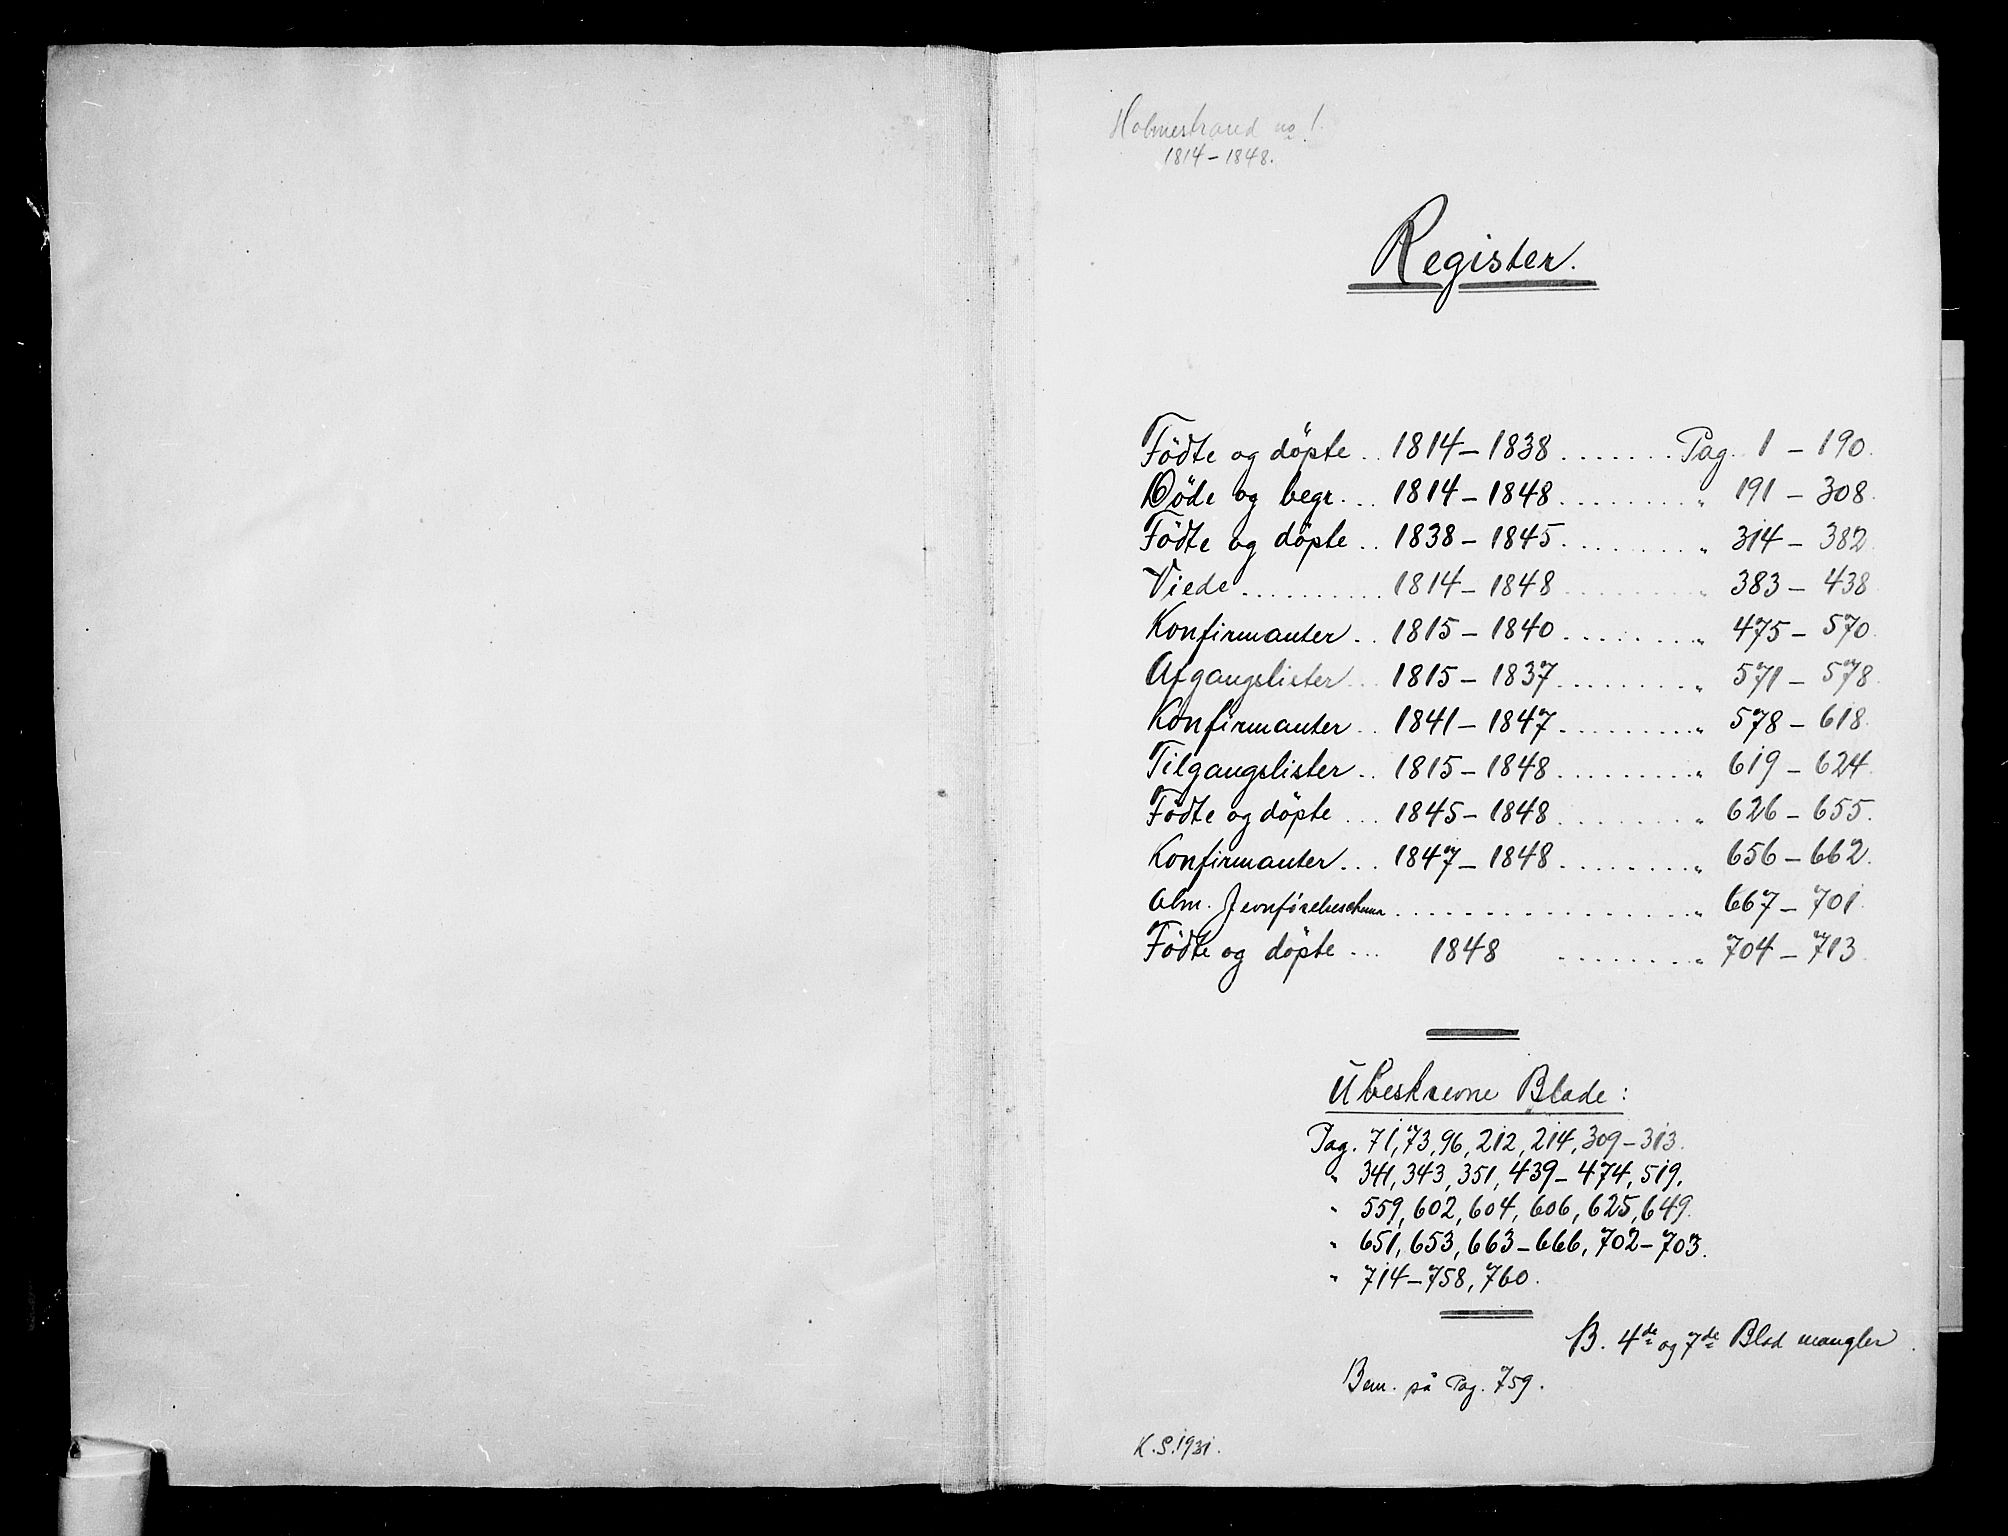 Holmestrand no 1.
1814-1848.
Register.
Födte og döpte .. 1814-1838 ....... Pag. 1 - 190.
Döde og begr. .. 1814-1848 ........ " 191 - 308.
Födte og döpte .. 1838-1845 ........ " 314 - 382.
Viede .......... 1814-1848 ........ " 383 - 438
Konfirmanter .. 1815-1840 ........ " 475 - 570.
Afgangslister .. 1815-1837 ........ " 571 - 578.
Konfirmanter .. 1841-1847 ........ " 578 - 618.
Tilgangslister .. 1815-1848 ........ " 619 - 624.
Födte og döpte ... 1845-1848 ........ " 626 - 655.
Konfirmanter ... 1847-1848 ........ " 656 - 662.
Alm. Jevnførelseschema ................ " 667 - 701.
Födte og döpte ... 1848 ........ " 704 - 713.
Ubeskrevne Blade:
Pag. 71, 73, 96, 212, 214, 309-313.
" 341, 343, 351, 439-474, 519.
" 559, 602, 604, 606, 625, 649.
" 651, 653, 663-666, 702-703.
" 714-758, 760.
B. 4de og 7de Blad mangler.
Bem. på Pag. 759.
K.S. 1931.